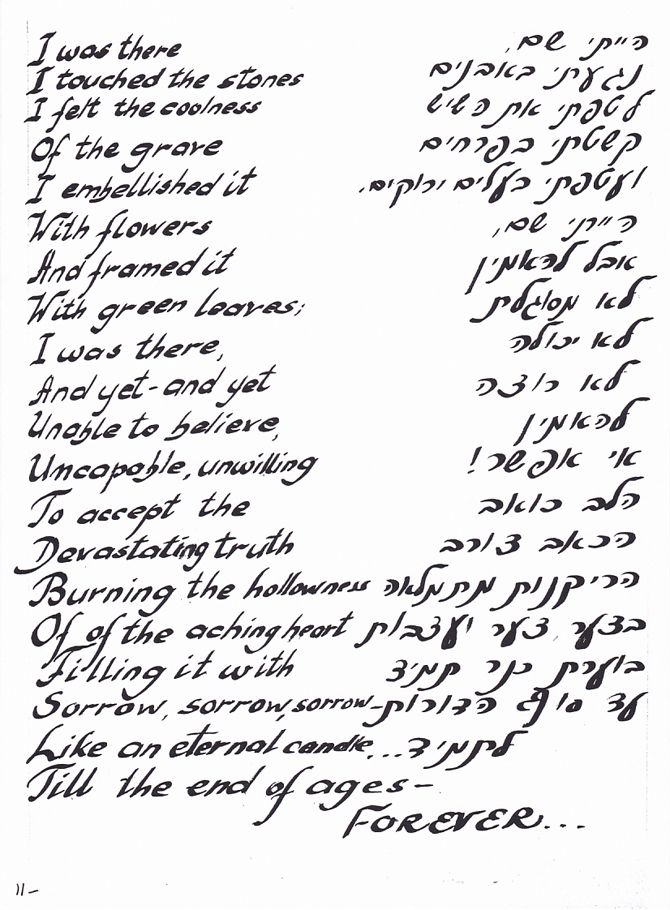 I was there
I touched the stones
I felt the coolness
Of the grave
I embellished it
With flowers
And framed it
With green leaves;
I was there,
And yet - and yet
Unable to believe,
Uncapable, unwilling
To accept the
Devastating truth
Burning the hollowness
Of of the aching heart
Filling it with
Sorrow, sorrow, sorrow
Like an eternal candle...
Till the end of ages -
FOREVER...
הייתי שם,
נגעתי באבנים
לטפתי את השיש
קשטתי בפרחים
ועטפתי בעלים ירוקים.
הייתי שם,
אבל להאמין
לא מסוגלת
לא יכולה
לא רוצה
להאמין
אי אפשר!
הלב כואב
הכאב צורב
הריקנות מתמלאה
בצער, צער ועצבות
בוערת כנר תמיד
עד סוף הדורות-
לתמיד...
11-